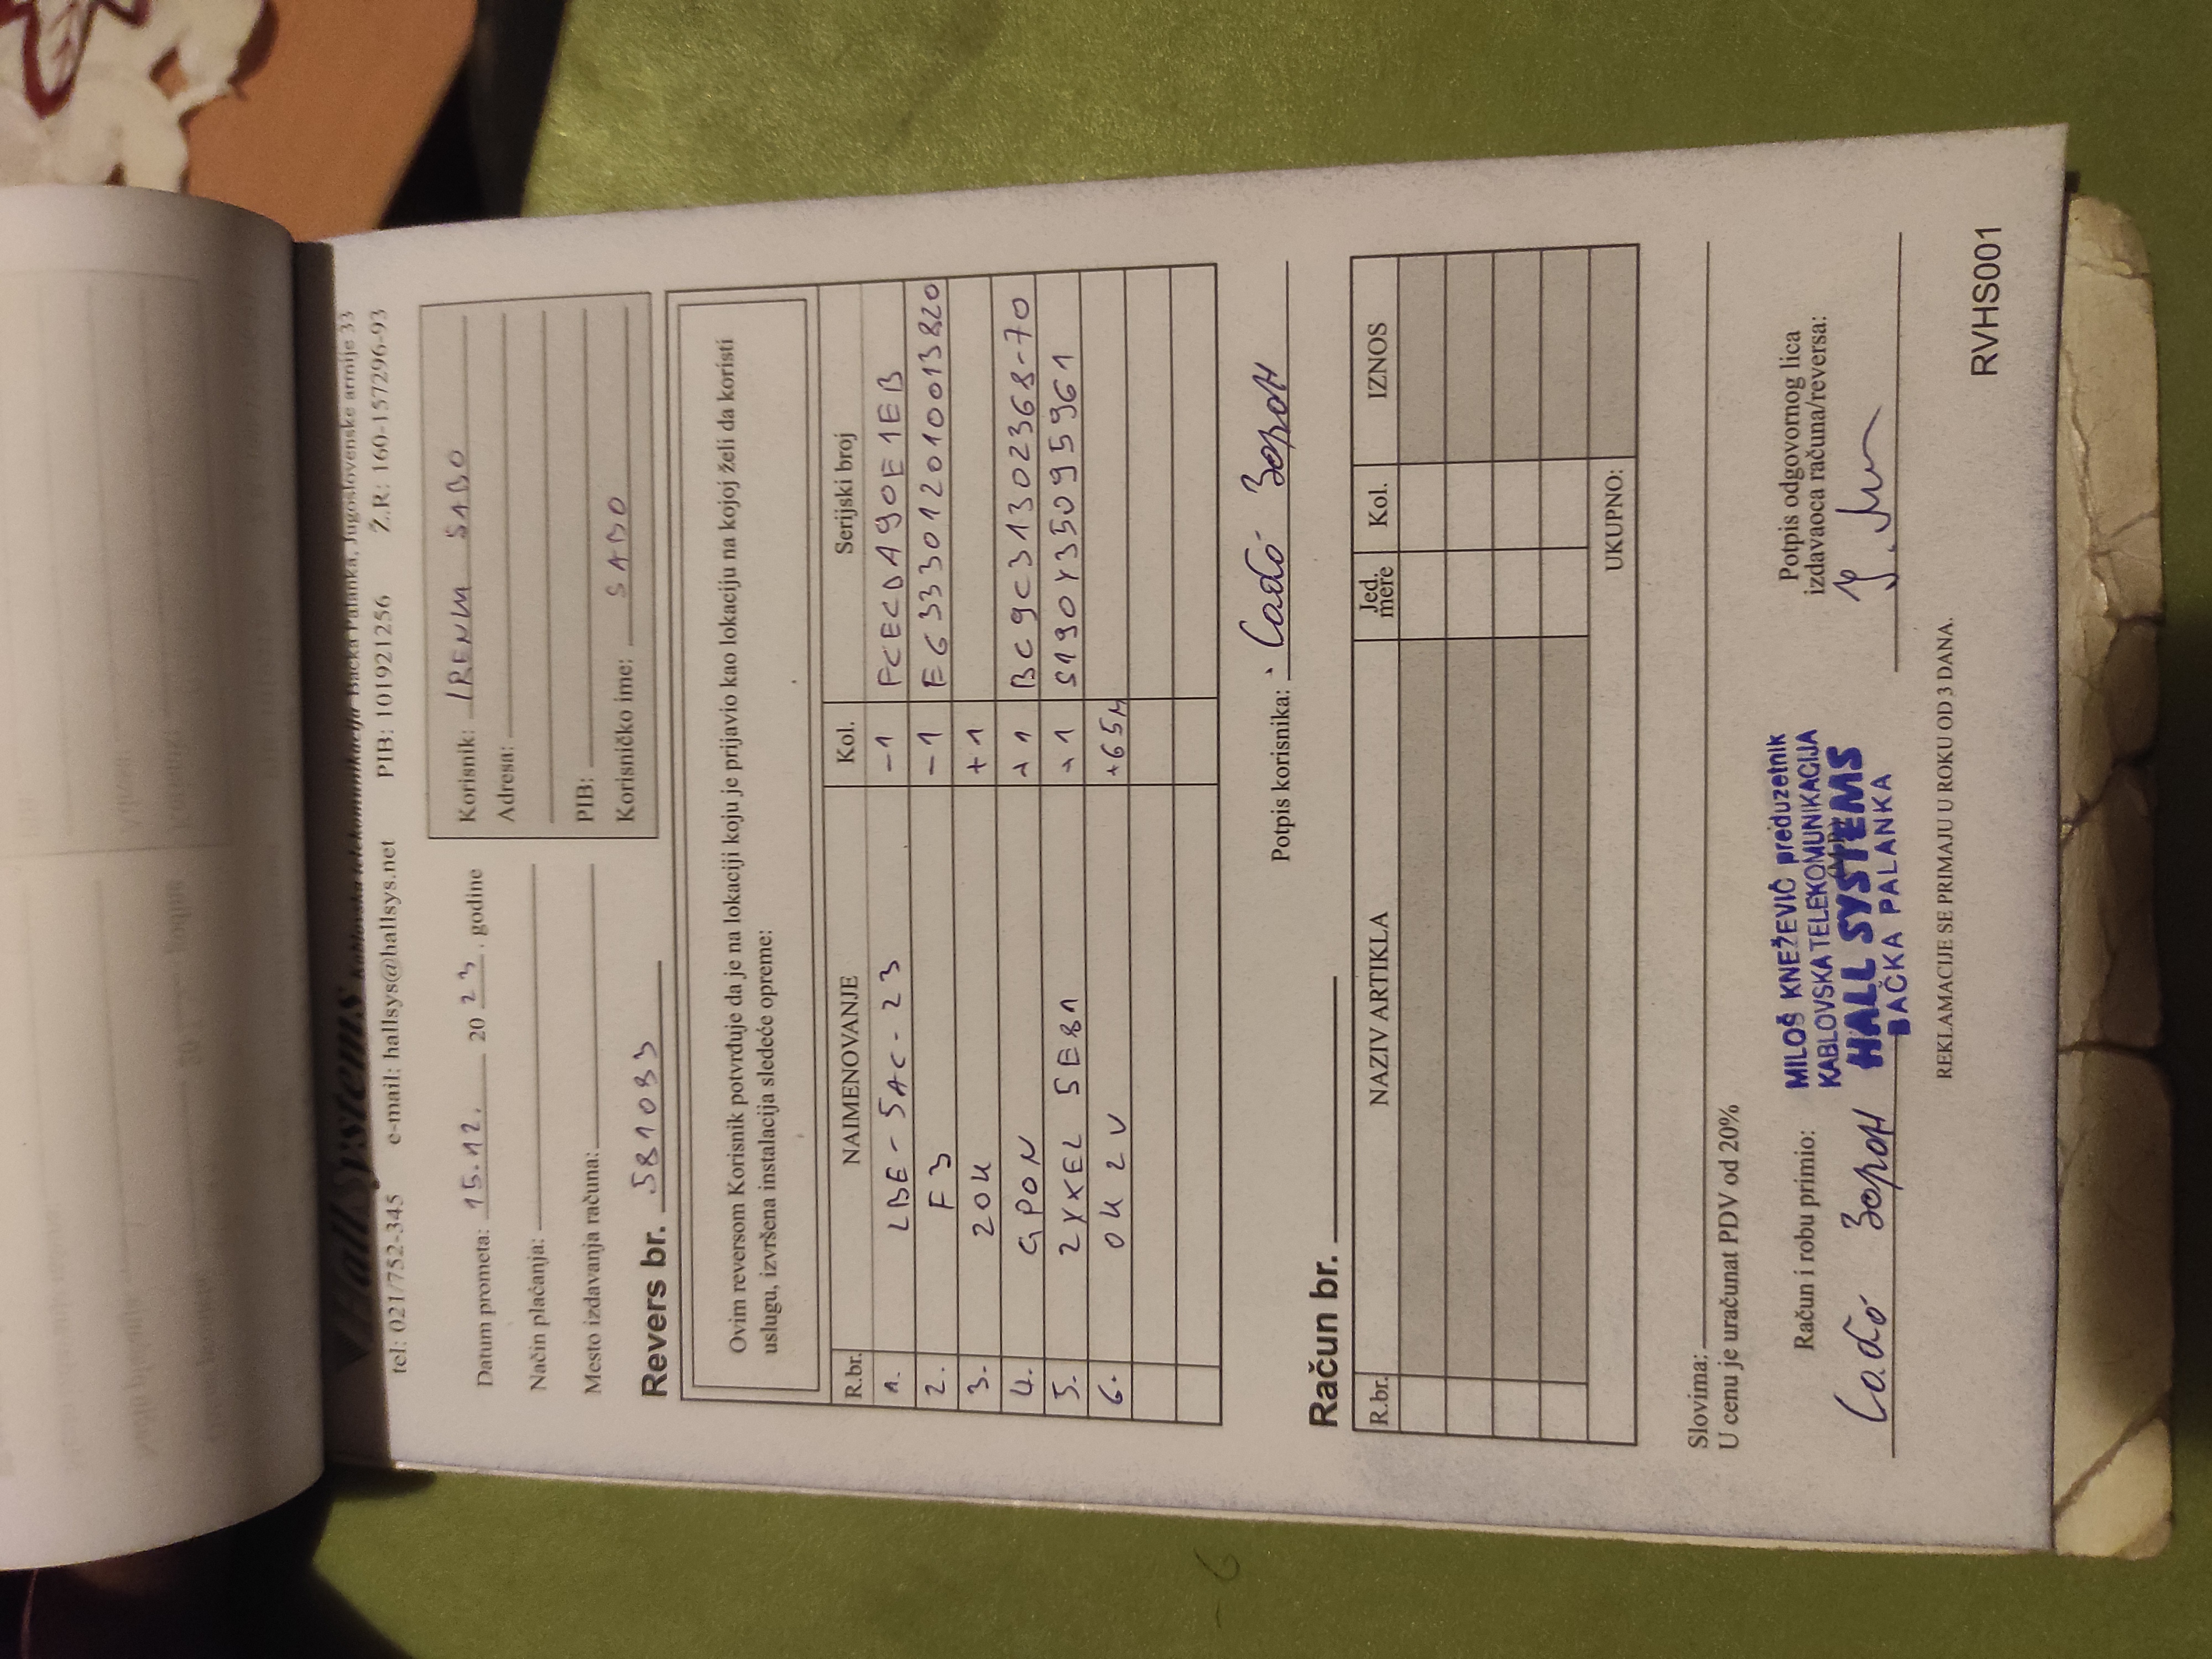 HallSystems Kablovska telekomunikacija Bačka Palanka, Jugoslovenske armije 33
tel: 021/752-345 e-mail: hallsys@hallsys.net PIB: 101921256 Ž.R: 160-157296-93
Datum prometa: 15.12. 20 23. godine
Način plaćanja:
Mesto izdavanja računa:
Korisnik: IRENM SABO
Adresa:
PIB:
Korisničko ime: SABO
Revers br. 581083
Ovim reversom Korisnik potvrđuje da je na lokaciji koju je prijavio kao lokaciju na kojoj želi da koristi
uslugu, izvršena instalacija sledeće opreme:
R.br. NAIMENOVANJE Kol. Serijski broj
1. LBE-5AC-23 -1 FCECDA90E1EB
2. F3 -1 EG3330120100013820
3. ZOK +1
4. GPON +1 BC9C31302368-70
5. ZYXEL SER1 +1 S190Y35095961
6. OK 2V +65M
Potpis korisnika: Сабо Зоран
Račun br.
R.br. NAZIV ARTIKLA Jed. mere Kol. IZNOS
UKUPNO:
Slovima:
U cenu je uračunat PDV od 20%
Račun i robu primio:
Сабо Зоран
MILOŠ KNEŽEVIĆ preduzetnik
KABLOVSKA TELEKOMUNIKACIJA
HALL SYSTEMS
BAČKA PALANKA
Potpis odgovornog lica
izdavaoca računa/reversa:
REKLAMACIJE SE PRIMAJU U ROKU OD 3 DANA.
RVHS001